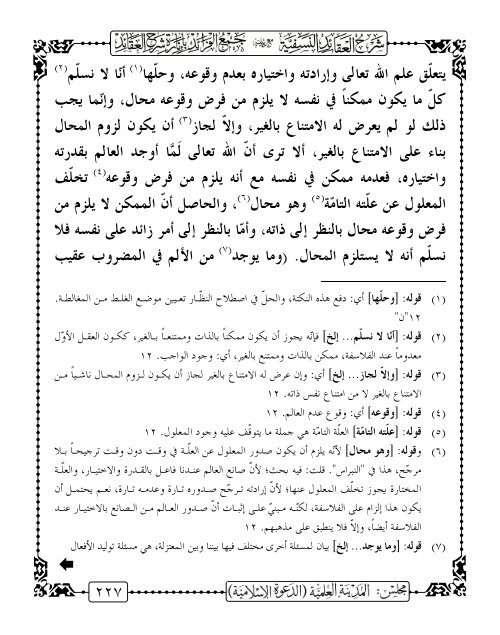 شرح العقائد النسفية مع جمع الفرائد بإنارة شرح العقائد
يتعلّق علم الله تعالى وإرادته واختياره بعدم وقوعه، وحلّها(١) أنّا لا نسلّم(٢)
كلّ ما يكون ممكناً في نفسه لا يلزم من فرض وقوعه محال، وإنّما يجب
ذلك لو لم يعرض له الامتناع بالغير، وإلاّ لجاز(٣) أن يكون لزوم المحال
بناء على الامتناع بالغير، ألا ترى أنّ الله تعالى لَمَّا أوجد العالم بقدرته
واختياره، فعدمه ممكن في نفسه مع أنه يلزم من فرض وقوعه(٤) تخلّف
المعلول عن علّته التامّة(٥) وهو محال(٦)، والحاصل أنّ الممكن لا يلزم من
فرض وقوعه محال بالنظر إلى ذاته، وأمّا بالنظر إلى أمر زائد على نفسه فلا
نسلّم أنه لا يستلزم المحال. (وما يوجد(٧) من الألم في المضروب عقيب
(١) قوله: [وحلّها] أي: دفع هذه النكتة، والحلّ في اصطلاح النظّار تعيين موضع الغلط من المغالطة.
١٢"ن"
(٢) قوله: [أنّا لا نسلّم... إلخ] فإنّه يجوز أن يكون ممكناً بالذات وممتنعاً بالغير، ككون العقل الأوّل
معدوماً عند الفلاسفة، ممكن بالذات وممتنع بالغير، أي: وجود الواجب. ١٢
(٣) قوله: [وإلاّ لجاز... إلخ] أي: وإن عرض له الامتناع بالغير لجاز أن يكون لزوم المحال ناشياً من
الامتناع بالغير لا من امتناع نفس ذاته. ١٢
(٤) قوله: [وقوعه] أي: وقوع عدم العالم. ١٢
(٥) قوله: [علّته التامّة] العلّة التامّة هي جملة ما يتوقّف عليه وجود المعلول. ١٢
(٦) وقوله: [وهو محال] لأنّه يلزم أن يكون صدور المعلول عن العلّة في وقت دون وقت ترجيحاً بلا
مرجّح، هذا في "النبراس". قلت: فيه بحث؛ لأنّ صانع العالم عندنا فاعل بالقدرة والاختيار، والعلّة
المختارة يجوز تخلّف المعلول عنها؛ لأنّ إرادته ترجّح صدوره تارة وعدمه تارة، نعم يحتمل أن
يكون هذا إلزام على الفلاسفة، لكنّه مبنيّ على إثبات أنّ صدور العالم من الصانع بالاختيار عند
الفلاسفة أيضاً، وإلاّ فلا ينطبق على مذهبهم. ١٢
(٧) قوله: [وما يوجد... إلخ] بيان لمسئلة أخرى مختلف فيها بيننا وبين المعتزلة، هي مسئلة توليد الأفعال
مجلس: المدينة العلمية (الدعوة الإسلامية)
٢٢٧